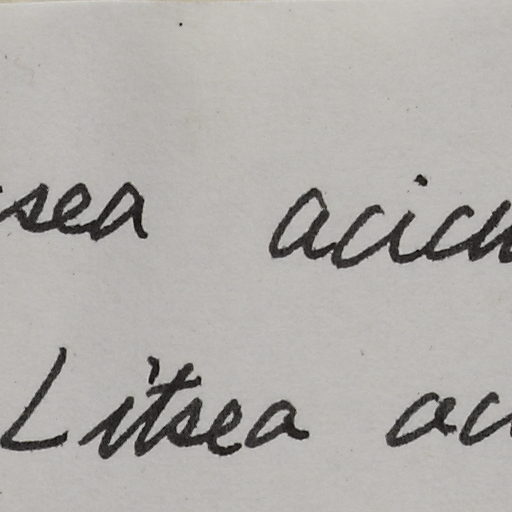 sea acicu
Litsea ac